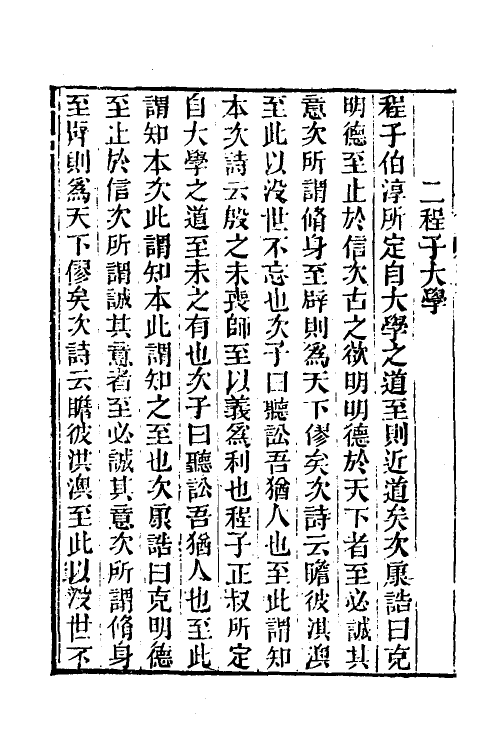 二程子大學
程子伯淳所定自大學之道至則近道矣次康誥曰克
明德至止於信次古之欲明明德於天下者至必誠其
意次所謂脩身至辟則爲天下僇矣次詩云瞻彼淇澳
至此以没世不忘也次子曰聽訟吾猶人也至此謂知
本次詩云殷之未喪師至以義爲利也程子正叔所定
自大學之道至未之有也次子曰聽訟吾猶人也至此
謂知本次此謂知本此謂知之至也次康誥曰克明德
至止於信次所謂誠其意者至必誠其意次所謂脩身
至辟則爲天下僇矣次詩云瞻彼淇澳至此以没世不